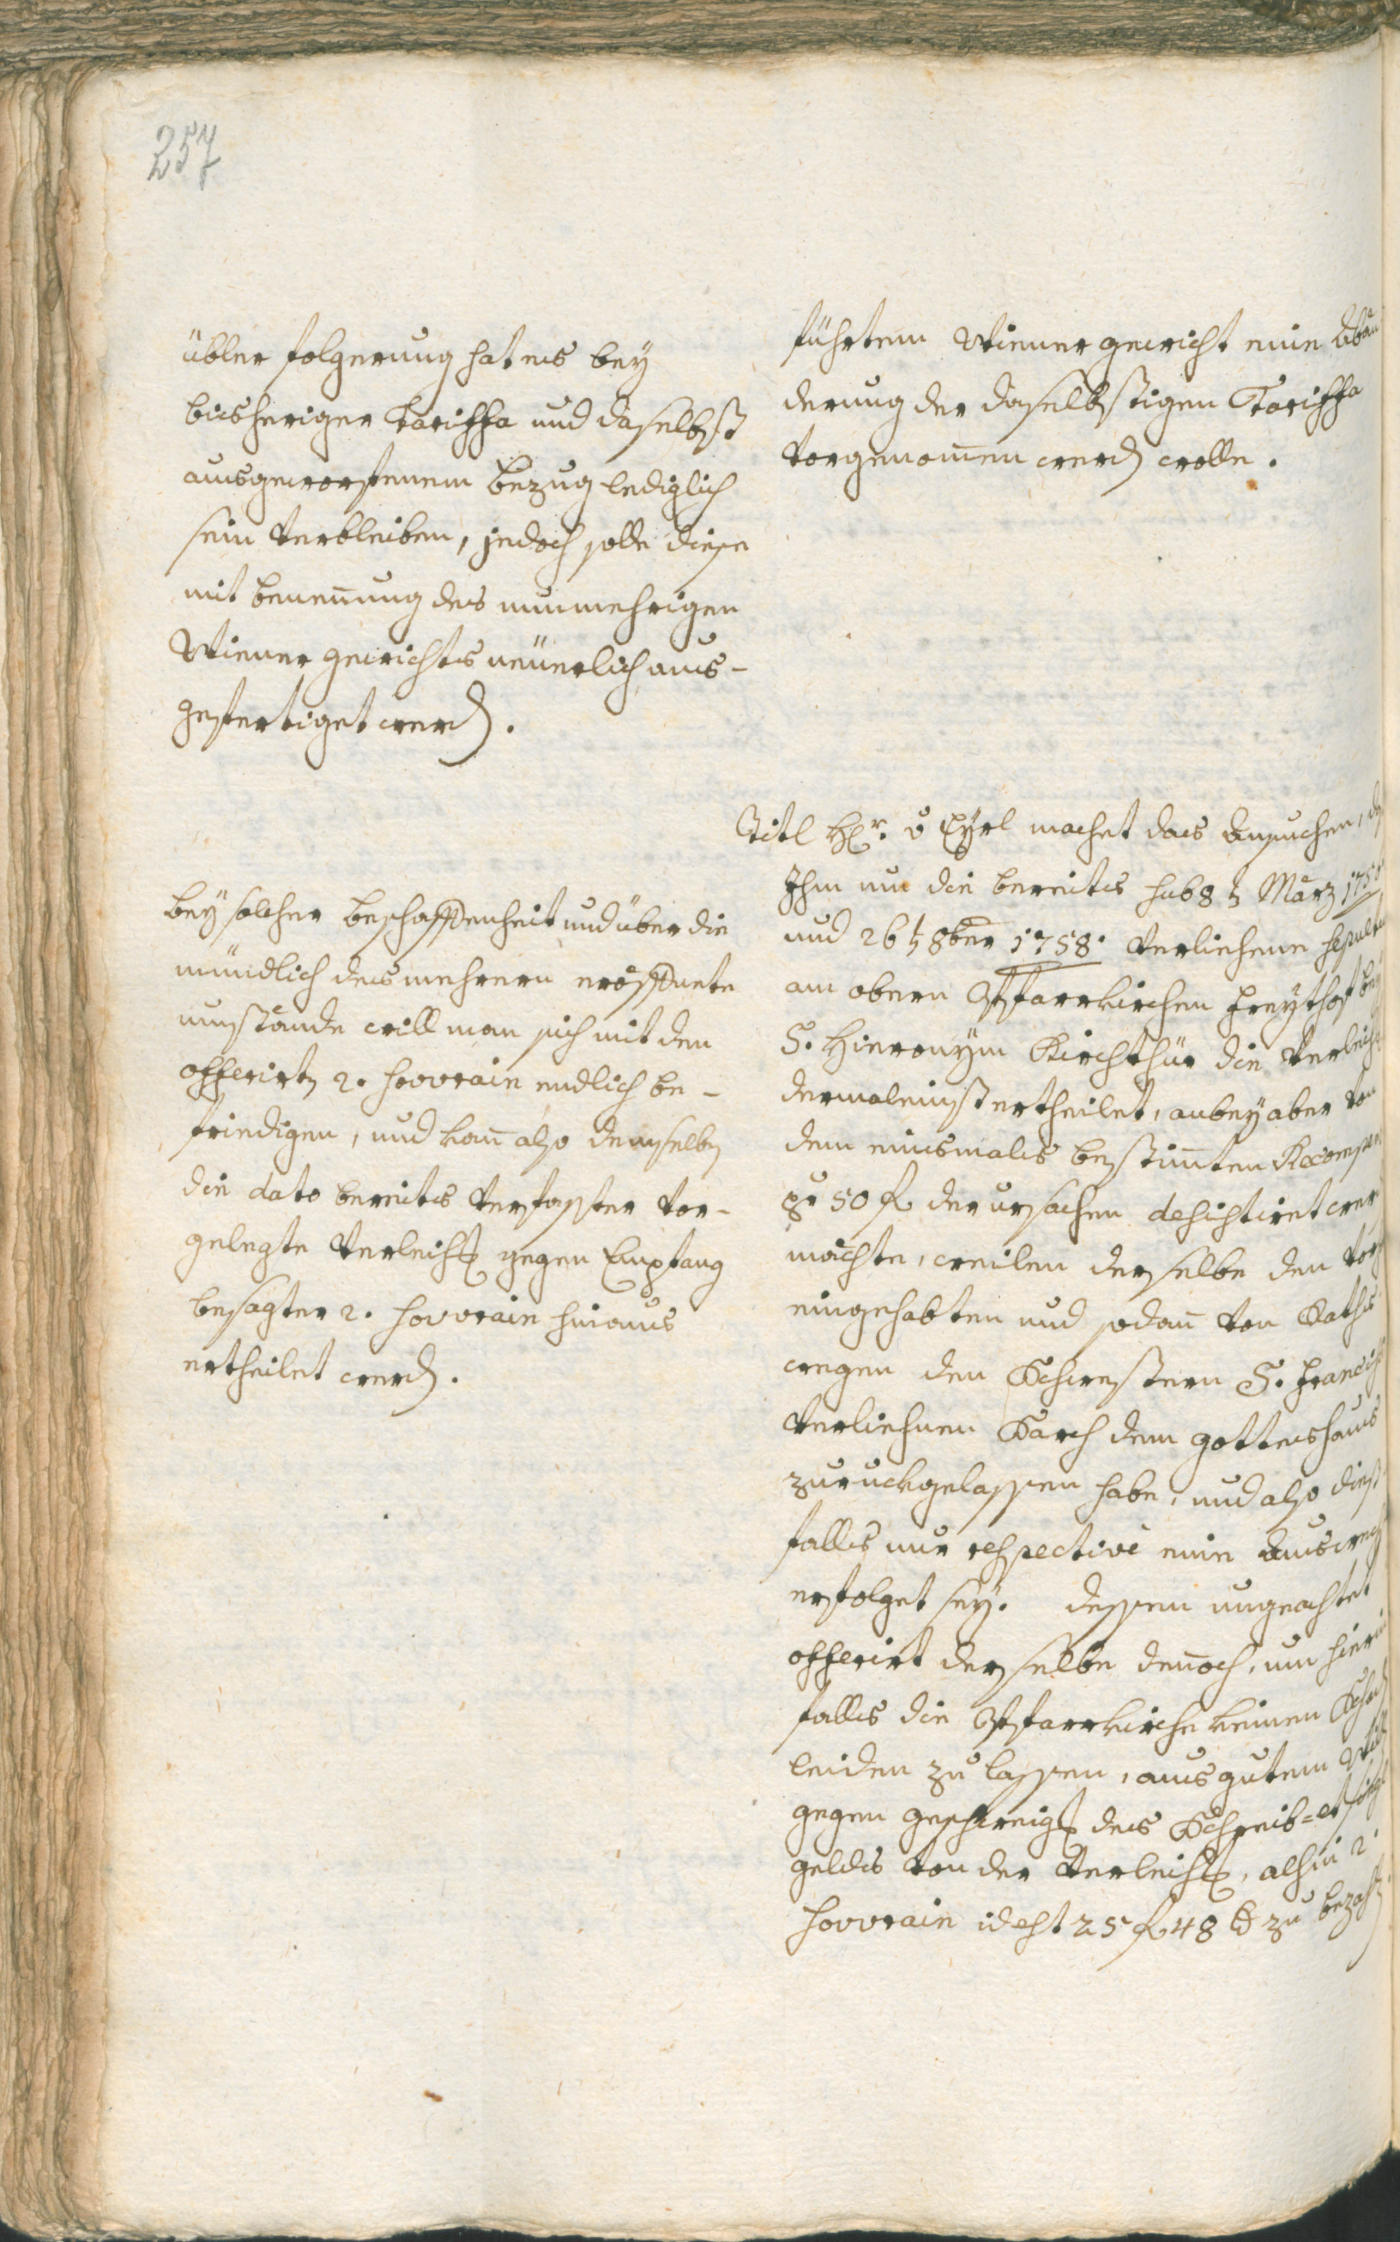 257
übler folgerung hat es bey
bisheriger tariffa und daselbst
ausgeworfenem Bezug lediglich
sein verbleiben, jedoch solle diese
mit benennung des nunmehrigen
Wiener gewichts neüerlich aus-
gefertiget werden.
bey solcher beschaffenheit und über die
mündlich des mehrern eröffnete
umstände will man sich mit den
offerirten 2. sovvrain endlich be-
friedigen, und kann also demselben
die dato bereits verfasster vor-
gelegte Verleihung gegen Empfang
besagter 2. sovvrain hinaus
ertheilet werden.
führtem Wiener gewicht eine Abän
derung der daselbstigen Tariffa
vorgenommen werden wolle.
Titl H[er]r v Eyrl machet das Ansuchen,
Ihm um die bereits sub 8 t März
und 26 t 8ber 1758. verliehene sepultur
am obern Pfarrkirchen freythof bey
S. Hieronÿm Kirchthür die Verleih
dermaleinst ertheilet, anbey aber von
dem einsmals bestimmten Recompens
pr 50 fl der ursachen desistiret wer
möchte, weilen derselbe den vor
eingehabten und sodann von Raths
wegen den Schwestern S. Francisci
verliehnen Sarch dem gotteshaus
zuruckgelassen habe, und also dies
falls nur respective eine Auswex
erfolget sey. dessen ungeachtet
offerirt derselbe dennoch, um hierin
falls die Pfarrkirche keinen Schad
leiden zu lassen, aus gutem Will
gegen geschweig des Schreib= et sigl
gelds von der Verleihung, alhin 2
sovvrain id est 25 fl 48 x zu bezahl